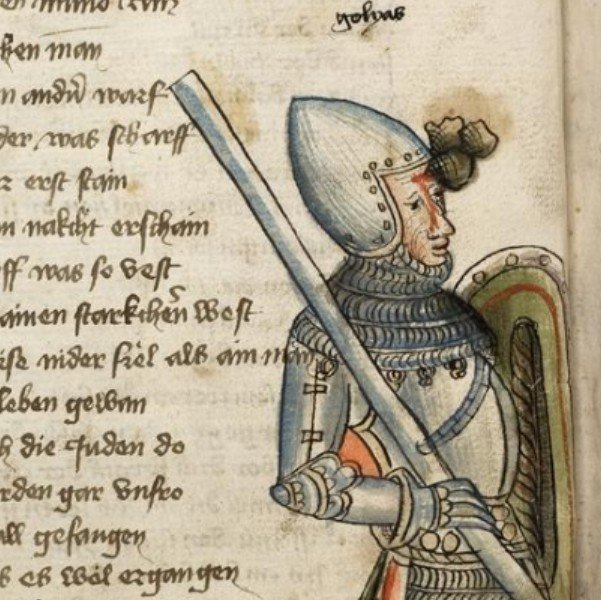 golias
ben man
n andern warf
der was scharff
erst stain
n nakcht erschain
ff was so vest
ainen starkchen West
nider fiel als ain man
leben gewan
h die Juden do
rden gar vnfro
all gefangen
s es wol ergangen